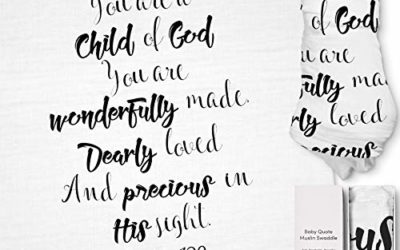 You are a
Child of God
You are
wonderfully made.
Dearly loved
And precious in
His sight.
of God
are
fully made
loved
cious in
Baby Quote
Muslin Swaddle